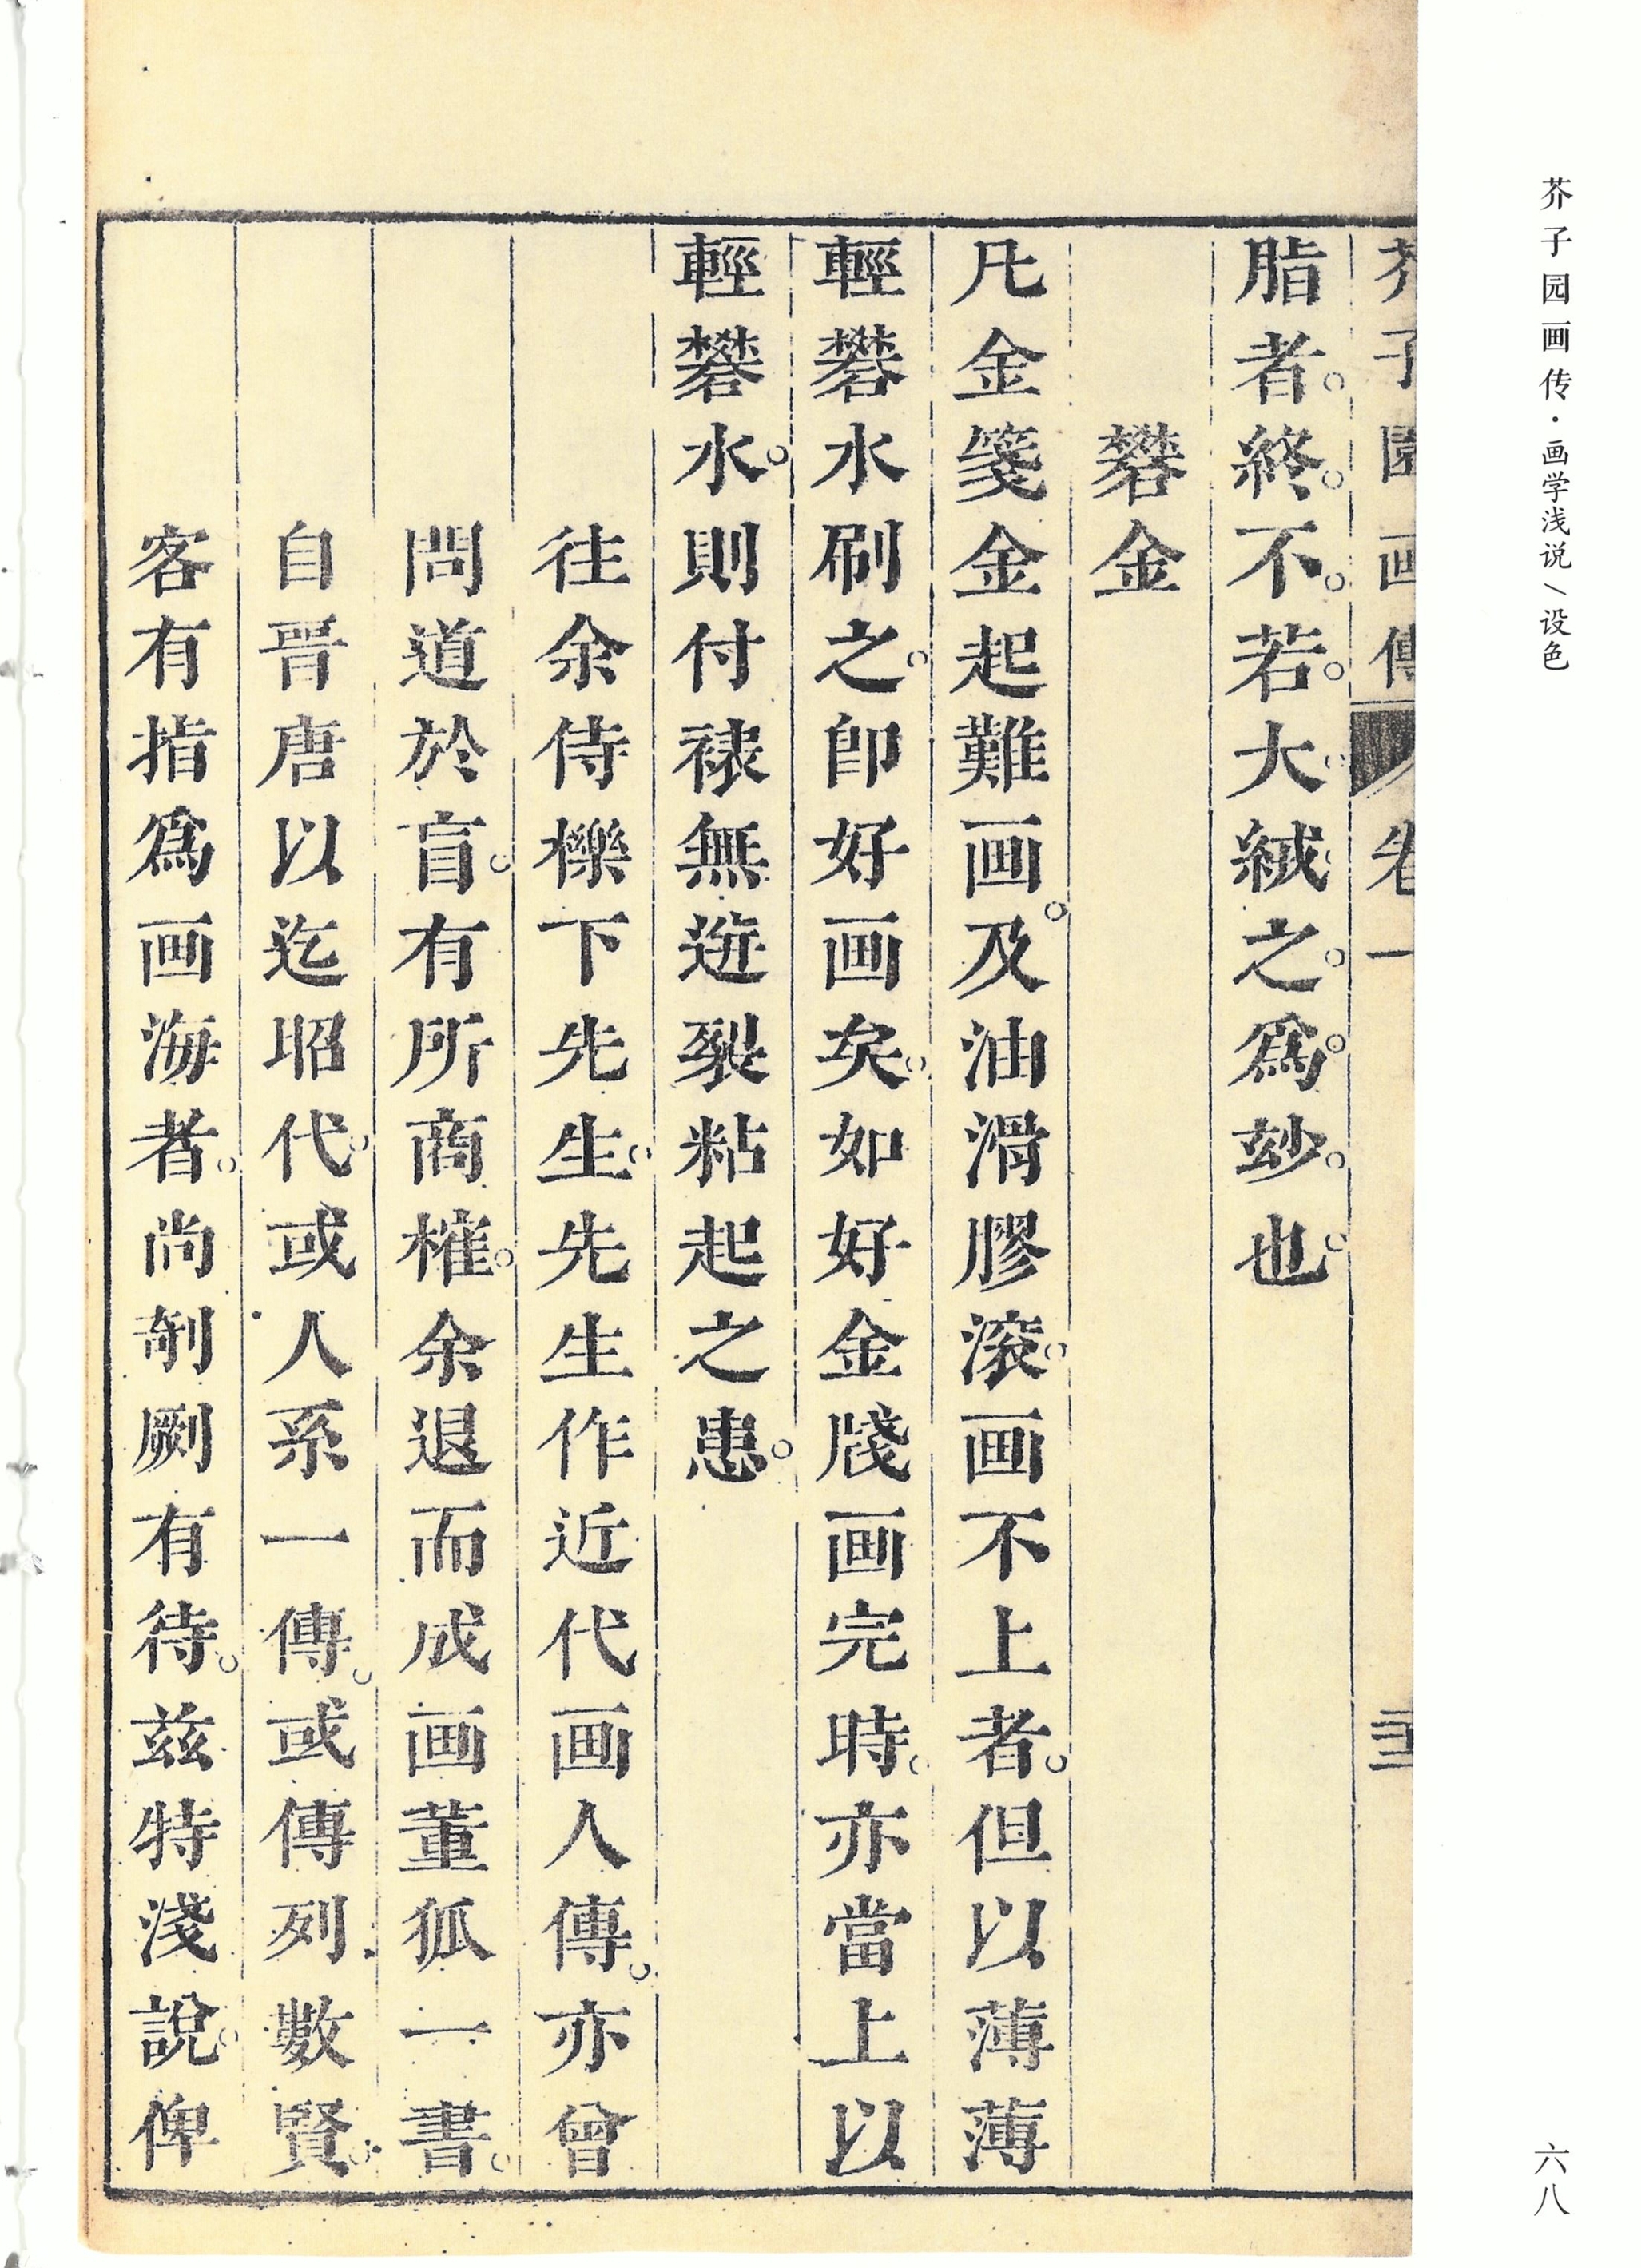 芥子园画传·画学浅说／设色
六八
芥子園画傳 卷一
脂者終不若大絨之爲玅也
礬金
凡金箋金起難画及油滑膠滚画不上者但以薄薄
輕礬水刷之即好画矣如好金牋画完時亦當上以
輕礬水則付裱無迸裂粘起之患
往余侍櫟下先生先生作近代画人傳亦曾
問道於盲有所商榷余退而成画董狐一書
自晉唐以迄昭代或人系一傳或傳列數賢
客有指爲画海者尚剞劂有待兹特淺說俾